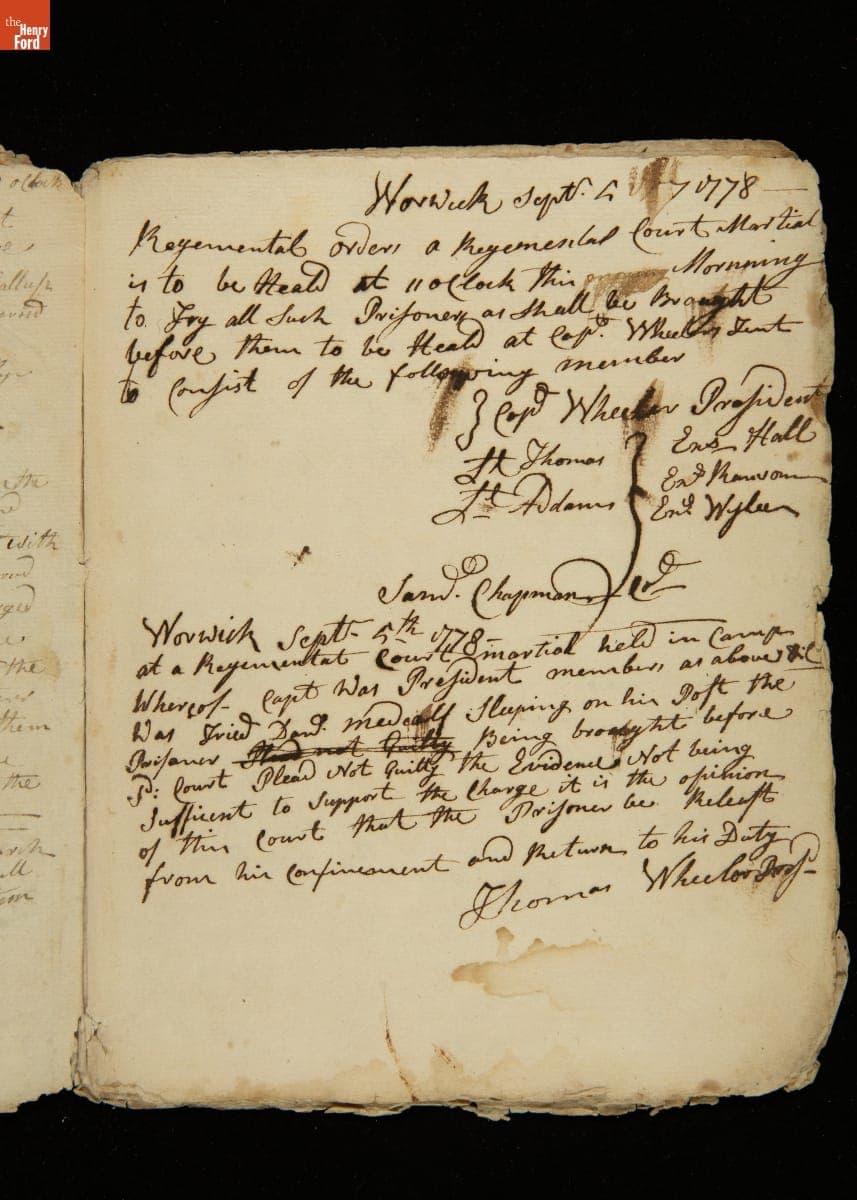 the
Henry
Ford
Worwick Sept. 5 1778
Regemental orders a Regemental Court Martial
is to be Heald at 11 oClock this Mornning
to Try all such Prisoners as shall be Braught
before them to be Heald at Capt. Wheelers Tent
to Consist of the following member
Capt Wheeler President
Lt Thomas
Lt Addams
Ens Hall
Ens Ransom
Ens Wylee
Saml. Chapman
Worwick Sept. 5th 1778
at a Regemental Court martial held in Camp
Whereof Capt Was President members as above
Was Tried Danl. medcalf Sleeping on his Post the
Prisoner Plead not Guilty Being broaght before
sd. Court Plead Not Guilty the Evidence Not being
Suffisent to support the Charge it is the opinion
of this Court that the Prisoner be Releast
from his Confinement and Return to his Duty
Thomas Wheeler Prest
o Clock
t
the
with
the
them
the